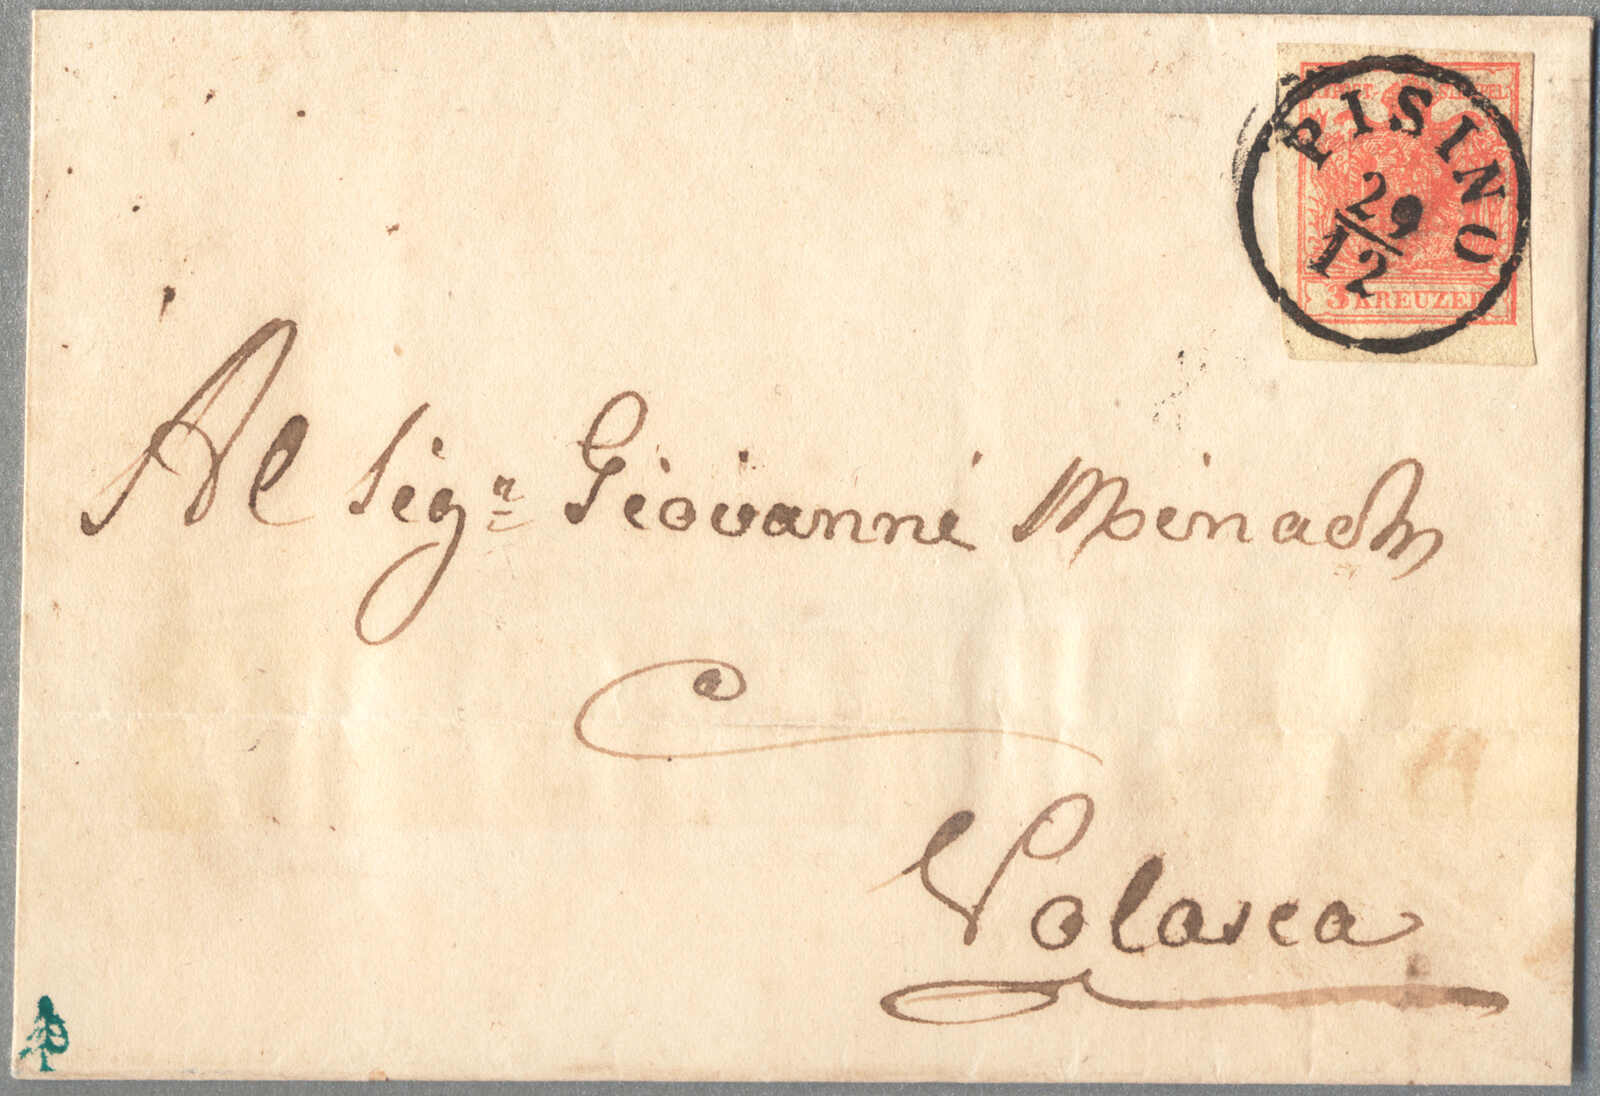 PISINO
29
12
3 KREUZER
Al Sigr Giovanni
Volosca